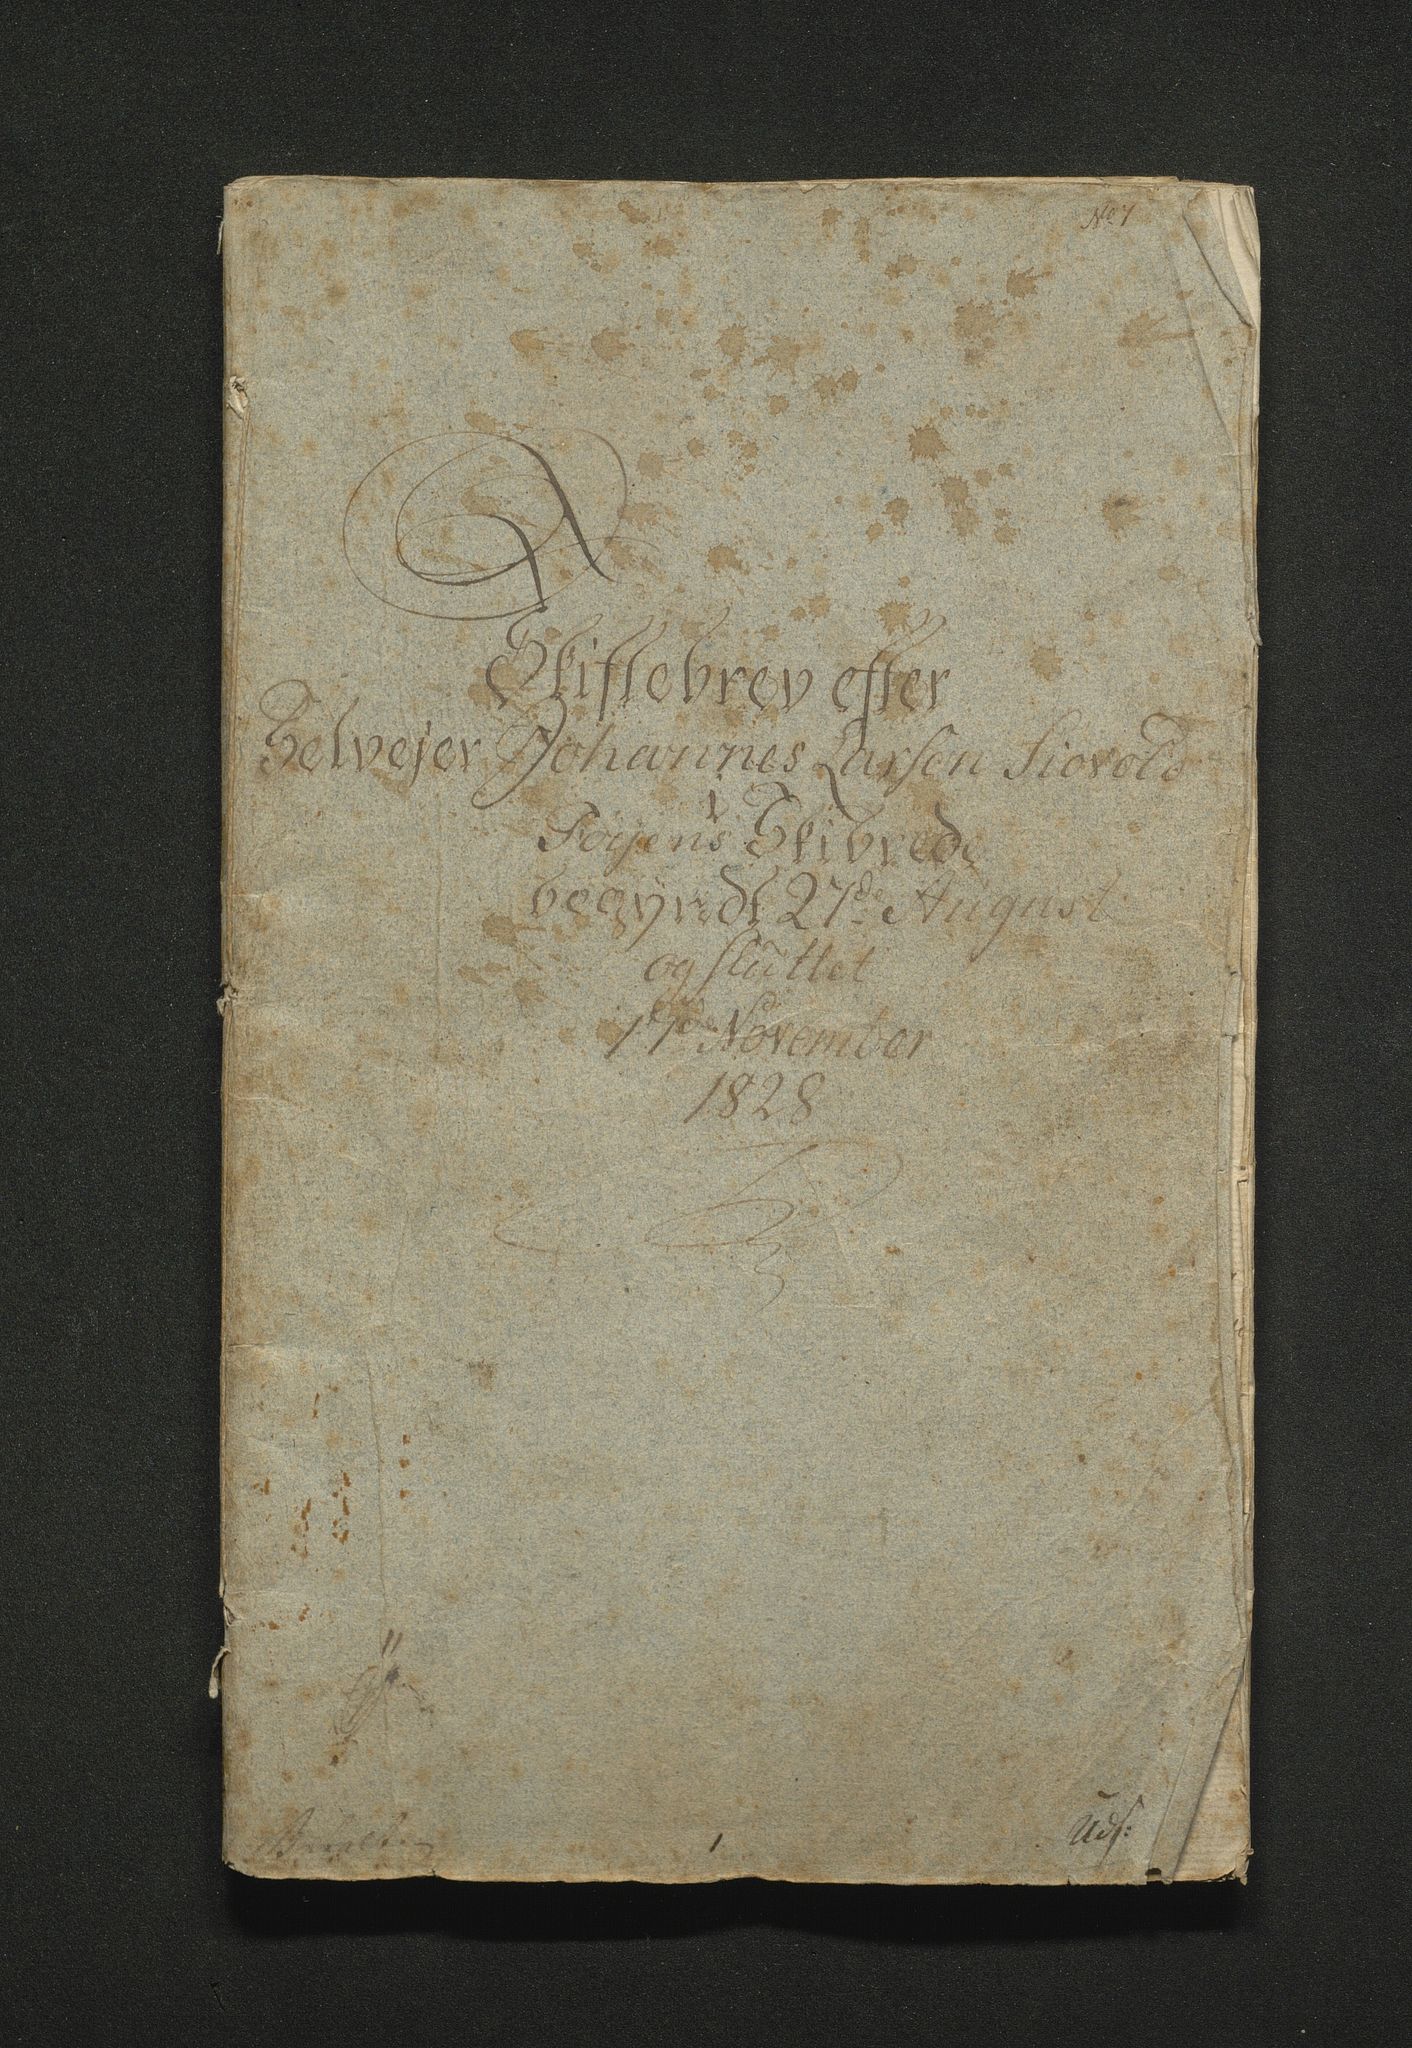 No 7
Skiftebrev efter
Selvejer Johannes Larsen Siovold
i
Føyens Skibrede
begyndt 27de August
og sluttet
17de November
1828
1
Uds: